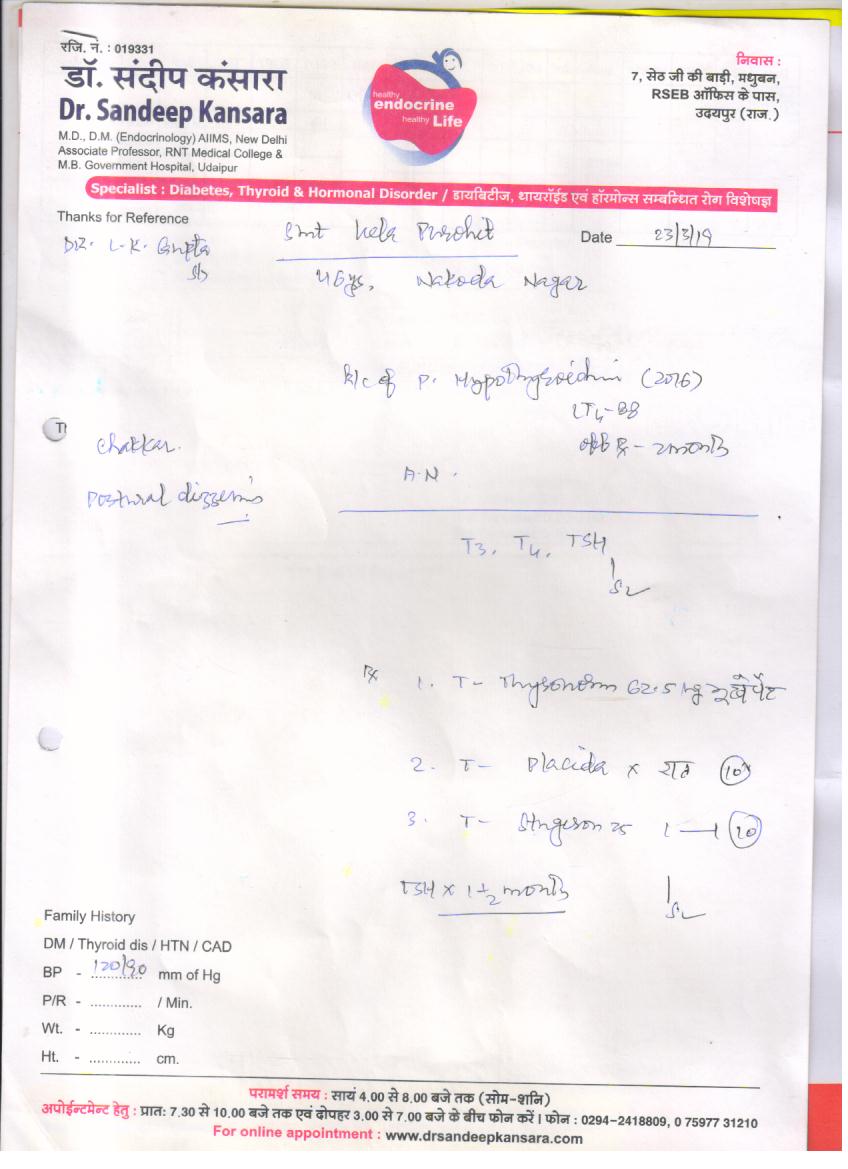 रजि. नं. : 019331
डॉ. संदीप कंसारा
Dr. Sandeep Kansara
M.D., D.M. (Endocrinology) AIIMS, New Delhi
Associate Professor, RNT Medical College &
M.B. Government Hospital, Udaipur
healthy
endocrine
healthy Life
निवास :
7, सेठ जी की बाड़ी, मधुबन,
RSEB ऑफिस के पास,
उदयपुर (राज.)
Specialist : Diabetes, Thyroid & Hormonal Disorder / डायबिटीज, थायरॉईड एवं हॉरमोन्स सम्बन्धित रोग विशेषज्ञ
Thanks for Reference
Dr. L.K. Gupta
Smt Purohit
Date 23/3/19
46ys, Nakoda Nagar
K/c of P. Hypothyroidism (2016)
LT4-88
off Rx - 2months
chakkar.
Postural dizziness
A.N.
T3, T4, TSH
Rx 1. T- Thyronorm 62.5 भूखे पेट
2. T- Placida x रात 10
3. T- Stugeron 25 1—1 10
TSH x 1 1/2 months
Family History
DM / Thyroid dis / HTN / CAD
BP - 120/90 mm of Hg
P/R - ............ / Min.
Wt. - ............ Kg
Ht. - ............ cm.
परामर्श समय : सायं 4.00 से 8.00 बजे तक (सोम-शनि)
अपोईन्टमेन्ट हेतु : प्रातः 7.30 से 10.00 बजे तक एवं दोपहर 3.00 से 7.00 बजे के बीच फोन करें । फोन : 0294-2418809, 0 75977 31210
For online appointment : www.drsandeepkansara.com